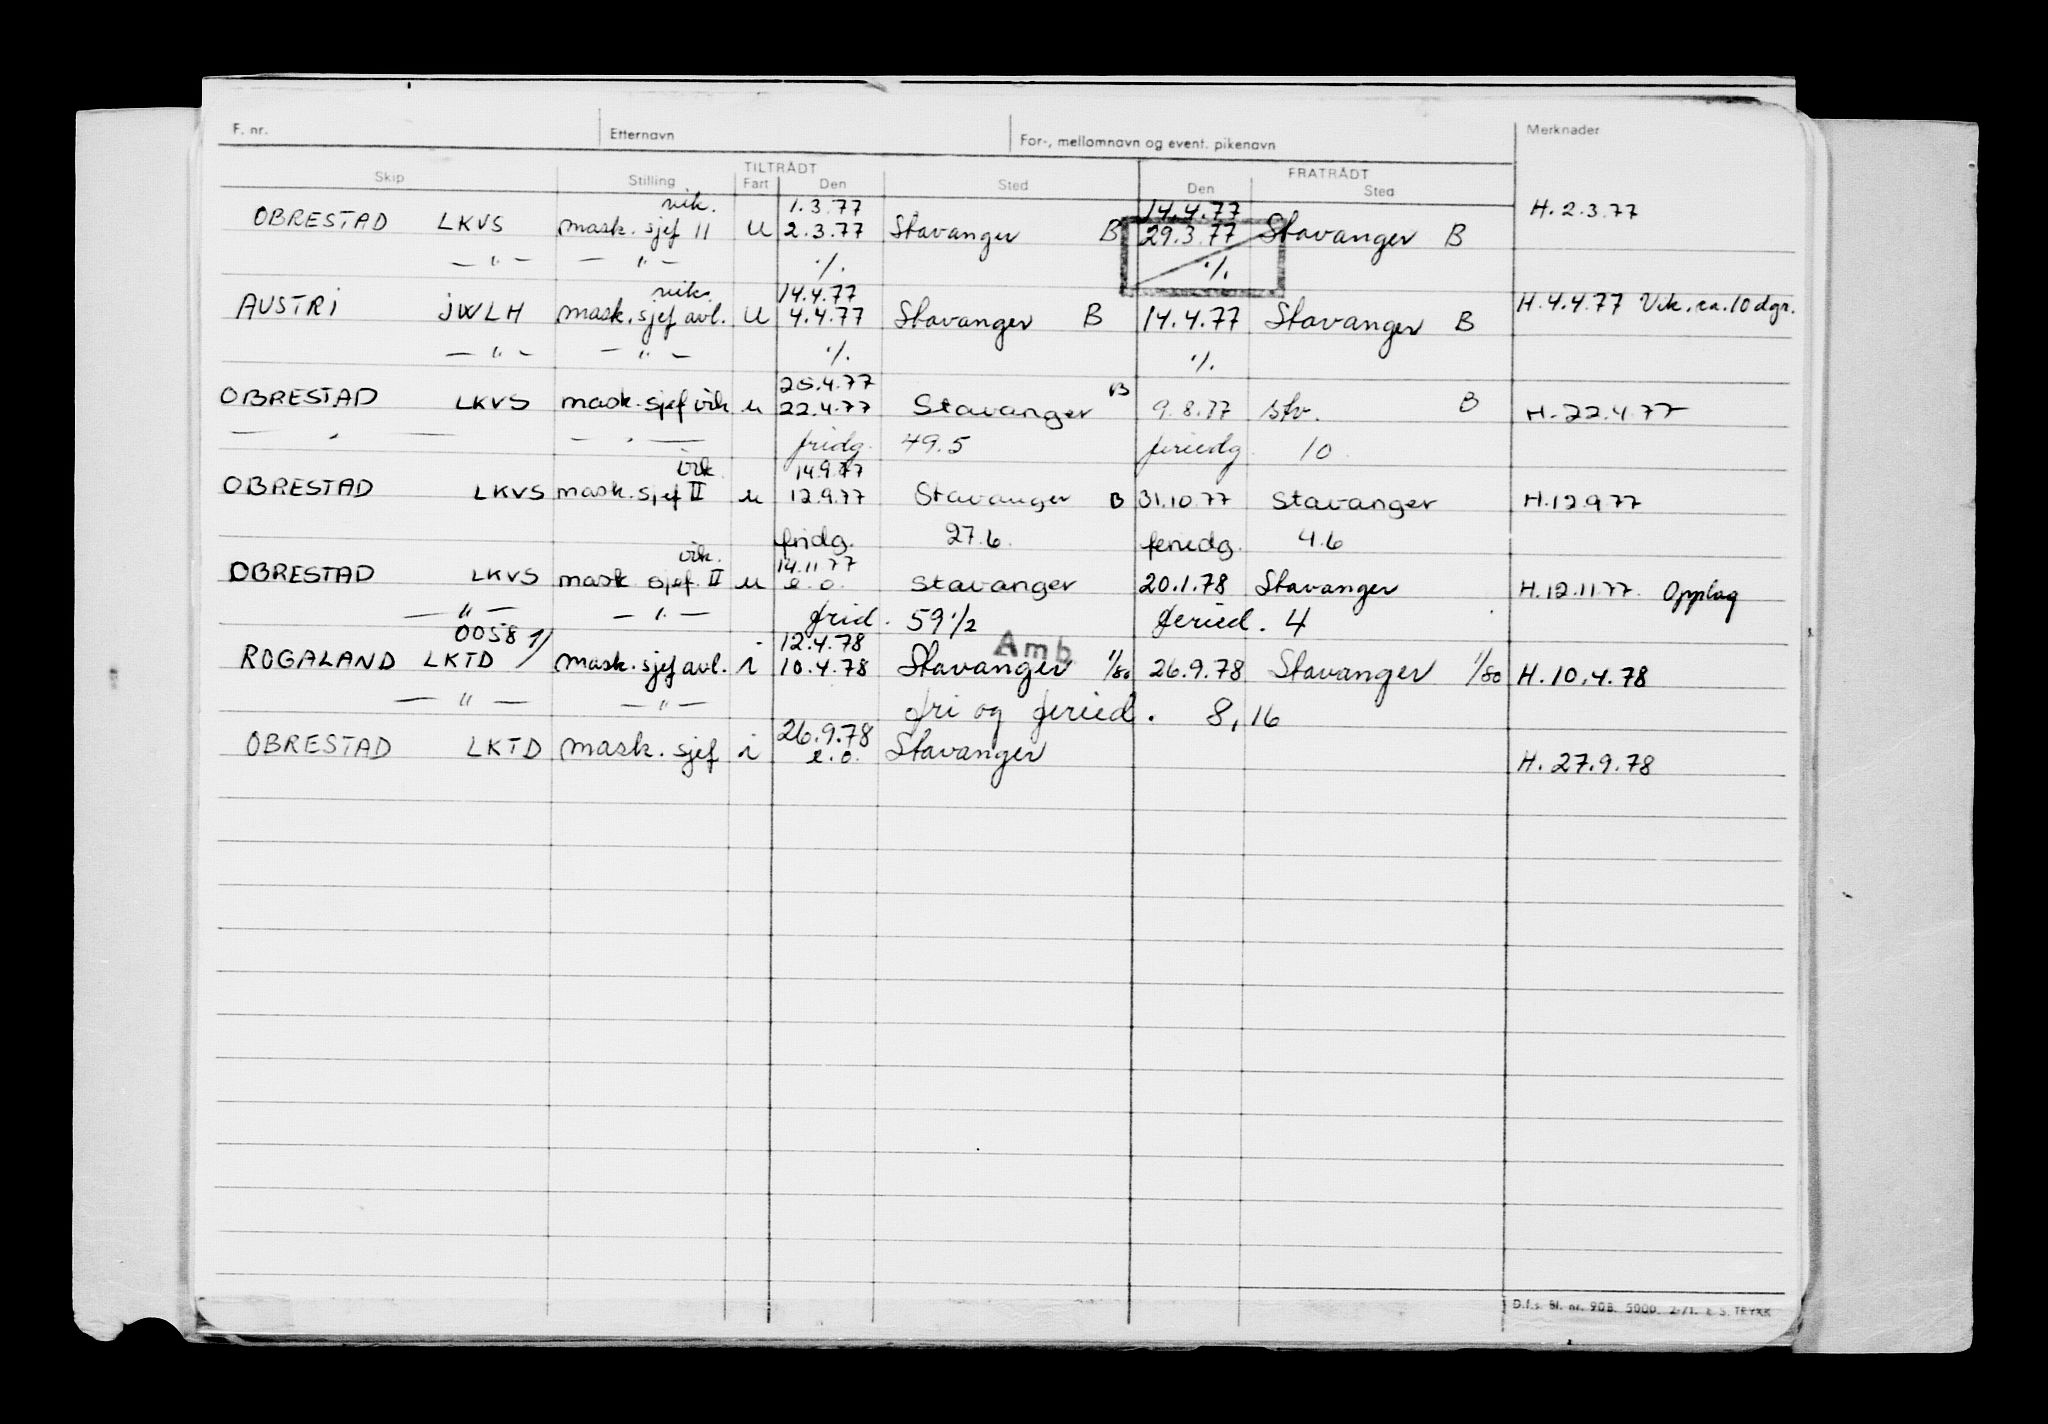 F. nr. Etternavn For-, mellomnavn og event. pikenavn Merknader
TILTRÅDT FRATRÅDT
Skip Stilling Fart Den Sted Den Sted
vik. 1.3.77 14.4.77 H. 2.3.77
OBRESTAD LKVS mask. sjef II U 2.3.77 Stavanger B 29.3.77 Stavanger B
— " — — " — ./. ./.
vik. 14.4.77
AUSTRI JWLH mask. sjef avl. U 4.4.77 Stavanger B 14.4.77 Stavanger B H. 4.4.77 Vik. ca. 10 dgr.
— " — — " — ./. ./.
25.4.77
OBRESTAD LKVS mask. sjef vik u 22.4.77 Stavanger B 9.8.77 Stv. B H. 22.4.77
— " — — " — fridg. 49.5 feriedg. 10
vik. 14.9.77
OBRESTAD LKVS mask. sjef II u 12.9.77 Stavanger B 31.10.77 Stavanger H. 12.9.77
fridg. 27.6 feriedg. 4.6
vik. 14.11.77
OBRESTAD LKVS mask. sjef. II u e.o. Stavanger 20.1.78 Stavanger H. 12.11.77. Opplag
— " — — " — frid. 59 1/2 feried. 4
0058 1/ 12.4.78 Amb
ROGALAND LKTD / mask. sjef avl. i 10.4.78 Stavanger 1/80 26.9.78 Stavanger 1/80 H. 10.4.78
— " — — " — fri og feried. 8,16
26.9.78
OBRESTAD LKTD mask. sjef i e.o. Stavanger H. 27.9.78
D.f.s. Bl. nr. 90B. 5000. 2-71. E. S. TRYKK